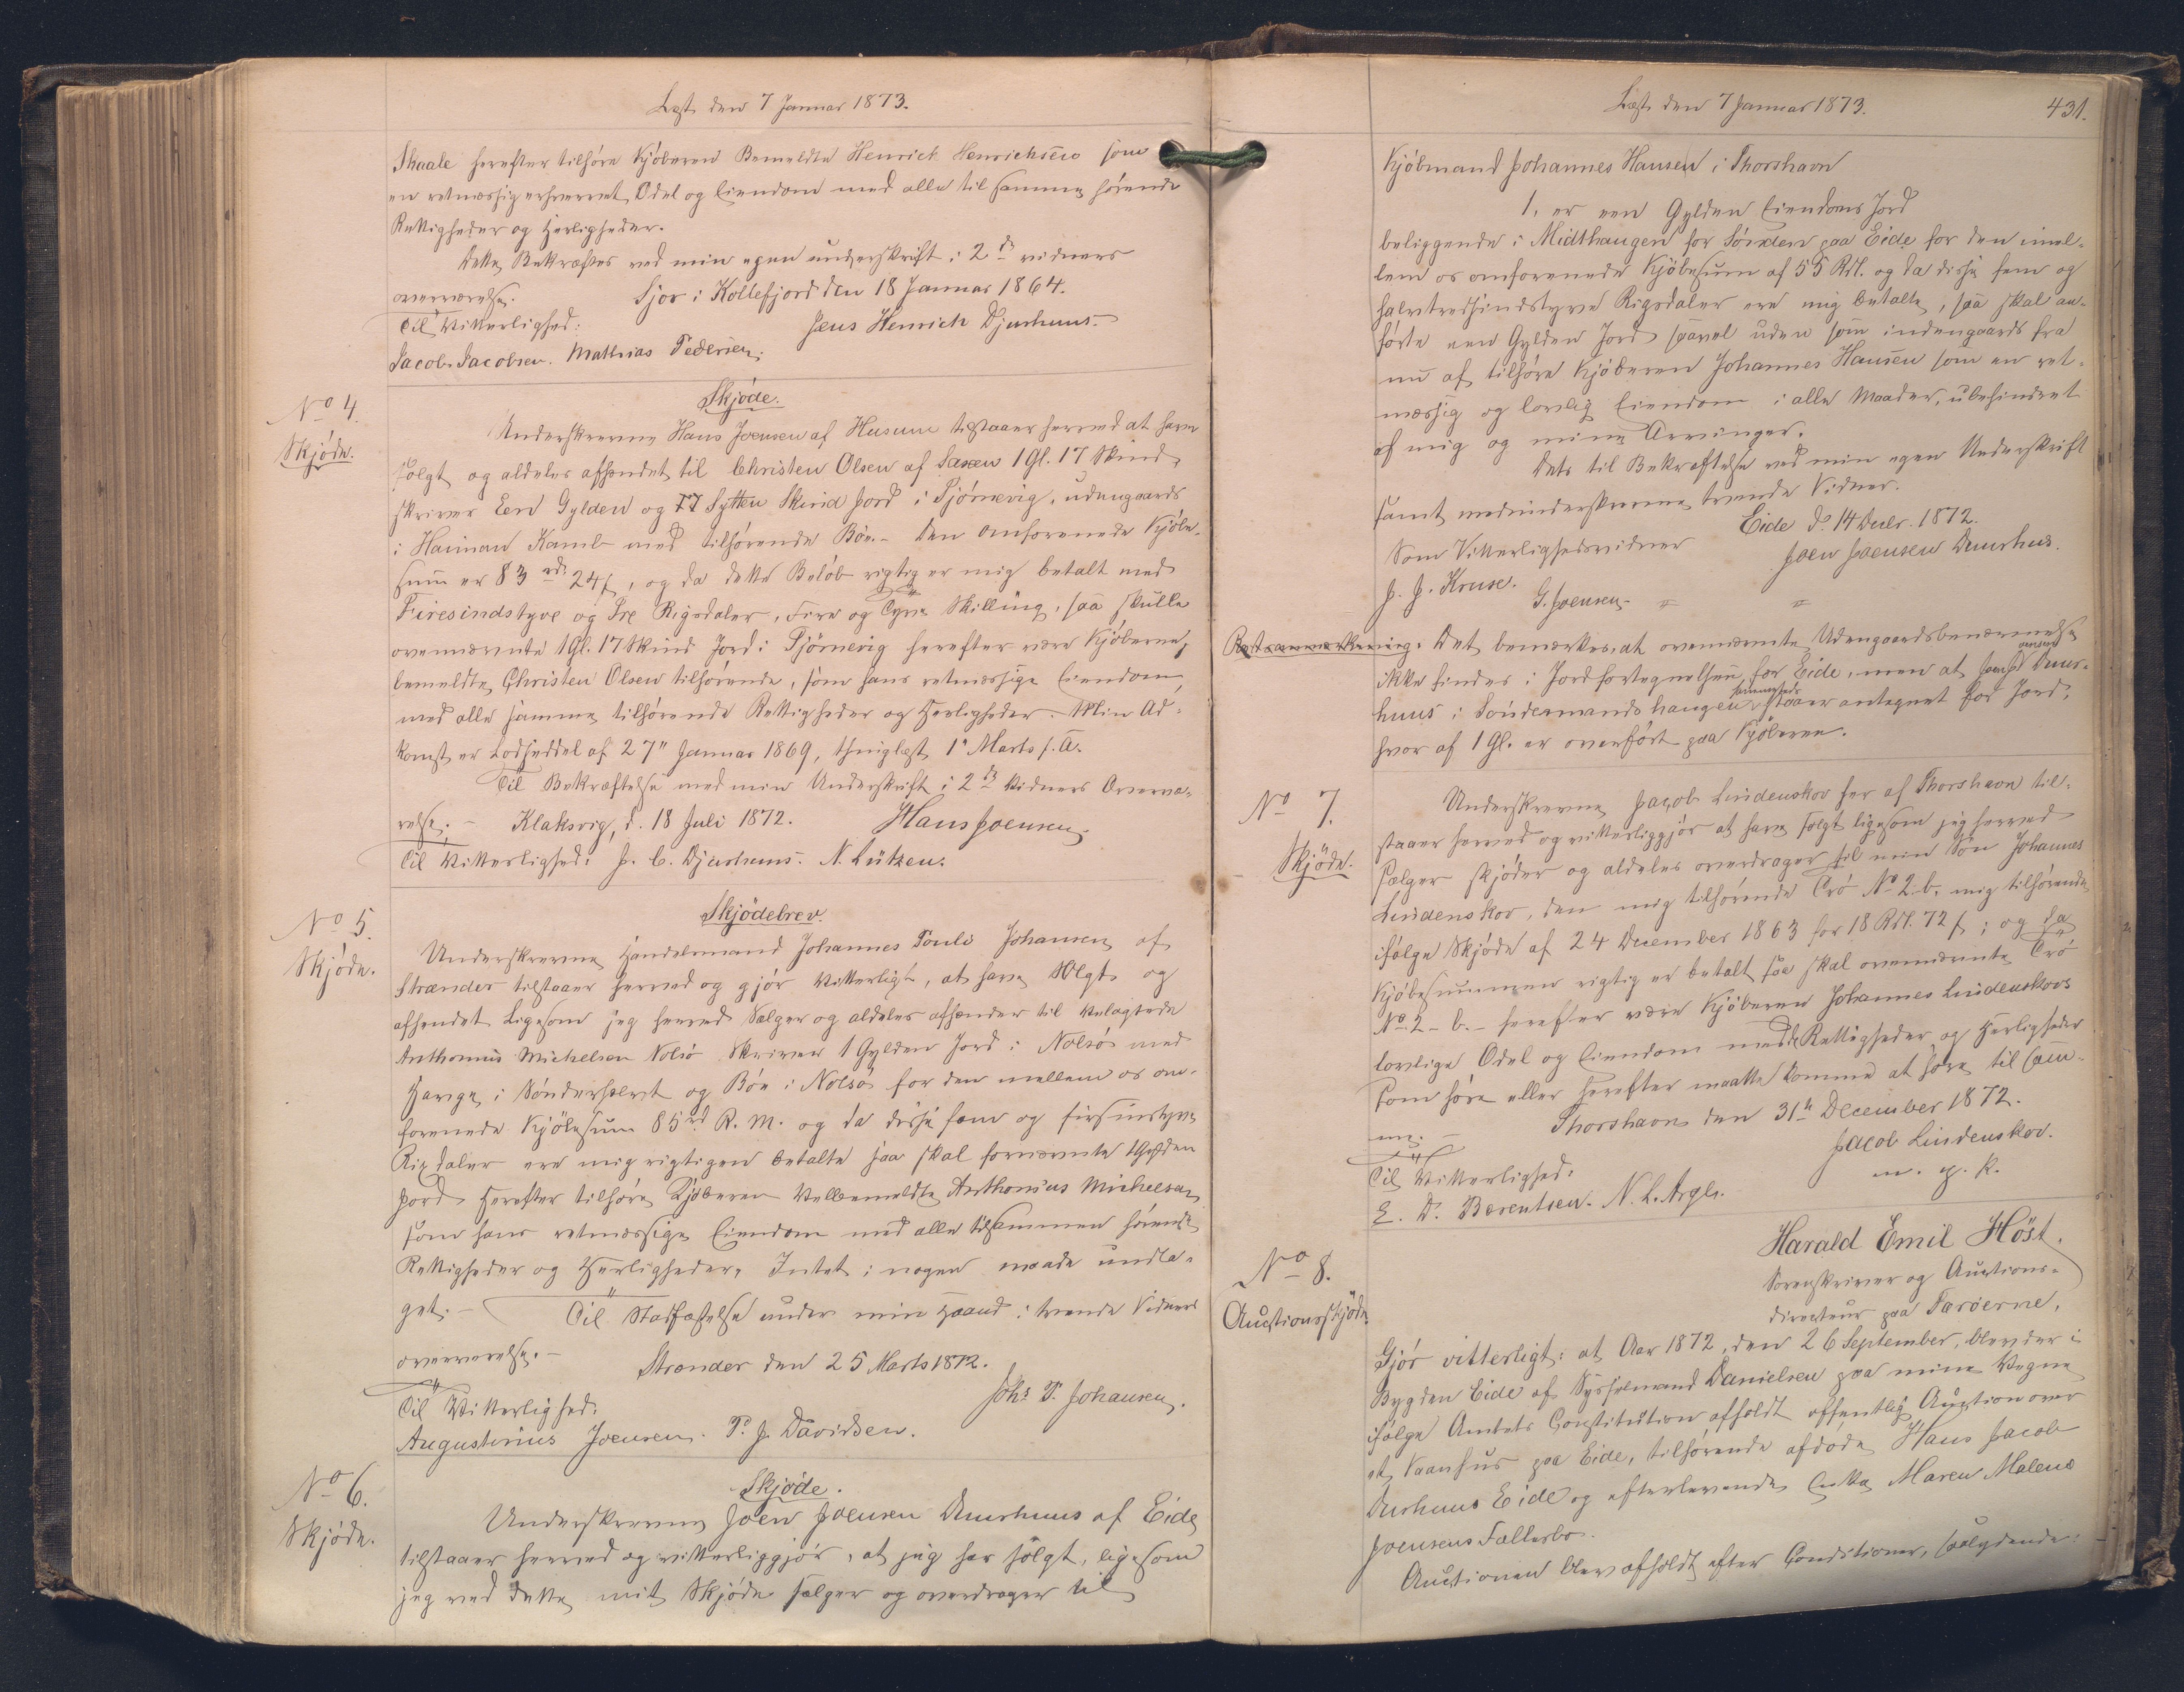 Læst den 7 Januar 1873.
Skaale herefter tilhøre Kjøberen Bemeldte Henrick Henrichsen som
en retmæssig erhvervet Odel og Eiendom med alle til samme hørende
Rettigheder og Herligheder.
Dette Bekræftes ved min egen underskrift i 2de vidners
overværelse. Sjor i Kollefjord den 18 Januar 1864.
Til Vitterlighed: Jens Henrich Djurhuus.
Jacob Jacobsen. Mathias Pedersen.
No 4. Skjøde.
Skjøde.
Underskrevne Hans Joensen af Husum tilstaaer herved at have
solgt og aldeles afhendet til Christen Olsen af Saxen 1 Gl. 17 Skind,
skriver Een Gylden og 17 Sytten Skind Jord i Tjørnevig, udengaards
i Hannan Kamb med tilhørende Bøe. - Den omforenede Kjøbe-
sum er 83 rd. 24 s, og da dette Beløb rigtig er mig betalt med
Firesindstyve og Tre Rigsdaler, Fire og Tyve Skilling, saa skulle
ovennævnte 1 Gl. 17 Skind Jord i Tjørnevig herefter være Kjøberen,
bemeldte Christen Olsen tilhørende, som hans retmæssige Eiendom,
med alle samme tilhørende Rettigheder og Herligheder. Min Ad-
komst er Lodseddel af 27" Januar 1869, thinglæst 1" Marts s. A.
Til Bekræftelse med min Underskrift i 2de Vidners Overvæ-
relse. - Klaksvig, d. 18 Juli 1872. Hans Joensen.
Til Vitterlighed: J. C. Djurhuus. N. Lützen.
No 5. Skjødebrev.
Skjøde.
Underskrevne Handelsmand Johannes Pouli Johansen af
Strænder tilstaaer herved og gjør Vitterligt, at have Solgt og
afhendet Ligesom jeg herved Sælger og aldeles afhænder til Velagtede
Anthonius Michelsen Nolsø Skriver 1 Gylden Jord i Nolsø med
Hauge i Sønderholmt og Bøe i Nolsø for den mellem os om-
forenede Kjøbesum 85 rd R. M. og da disse fem og firsinstyve
Rigdaler ere mig rigtigen betalte saa skal fornævnte 1 Gylden
Jord Herefter tilhøre Kjøberen Velbemeldte Anthonius Michelsen
som hans retmæssige Eiendom med alle tilsammen hørende
Rettigheder og Herligheder, Intet i nogen maade undta-
get. - Til Stadfæstelse under min Haand i tvende Vidners
overværelse. - Strænder den 25 Marts 1872.
Til Vitterlighed: Johs P. Johansen.
Augustinus Joensen. P. J. Davidsen.
No 6. Skjøde.
Skjøde.
Underskrevne Joen Joensen Duurhuus af Eide
tilstaaer herved og vitterliggjør, at jeg har solgt, ligesom
jeg ved dette mit Skjøde sælger og overdrager til
Læst den 7 Januar 1873. 431.
Kjøbmand Johannes Hansen i Thorshavn
1, er een Gylden Eiendoms Jord
beliggende i Midthaugen for Sønden paa Eide for den imel-
lem os omforenede Kjøbesum af 55 Rdl. og da disse fem og
halvtredsindstyve Rigsdaler ere mig betalte, saa skal an-
førte een Gylden Jord saavel uden som indengaards fra
nu af tilhøre Kjøberen Johannes Hansen som en ret-
mæssig og lovlig Eiendom i alle Maader, ubehindret
af mig og mine Arvinger.
Dets til Bekræftelse ved min egen Underskrift
samt medunderskrevne tvende Vidner.
Eide d. 14 Decbr. 1872.
Som Vitterlighedsvidner Joen Joensen Duurhus.
J. J. Kruse. G. Joensen.
Retsanmærkning. Det bemærkes, at ovennævnte Udengaardsbenævnelse
ikke findes i Jordfortegnelsen for Eide, men at Joen Joensen Duur-
huus i Søndermandshaugen sammesteds staaer antegnet for Jord,
hvor af 1 Gl. er overført paa Kjøberen.
No 7. Underskrevne Jacob Lindenskov her af Thorshavn til-
Skjøde. staaer herved og vitterliggjør at have solgt ligesom jeg herved
sælger skjøder og aldeles overdrager til min Søn Johannes
Lindenskov, den mig tilhørende Trø No 2 b. mig tilhørende
ifølge Skjøde af 24 December 1863 for 18 Rdl. 72 s; og da
Kjøbesummen rigtig er betalt saa skal ovennævnte Trø
No. 2 - b. - herefter være Kjøberen Johannes Lindenskovs
lovlige Odel og Eiendom med de Rettigheder og Herligheder
som høre eller herefter maatte komme at høre til sam-
me. - Thorshavn den 31te December 1872.
Til Vitterlighed: Jacob Lindenskov.
E. D. Bærentsen. N. L. Arge. m. f. P.
No 8. Harald Emil Høst.
Auctionsskjøde. Sorenskriver og Auctions-
directeur paa Færøerne,
Gjør vitterligt: at Aar 1872, den 26 September, blev der i
Bygden Eide af Sysselmand Danielsen paa mine Vegne
ifølge Amtets Constitution afholdt offentlig Auction over
et Vaanhus paa Eide, tilhørende afdøde Hans Jacob
Durhuus Eide og efterlevende Enke Maren Malene
Joensens Fællesbo.
Auctionen blev afholdt efter Conditioner, saalydende: